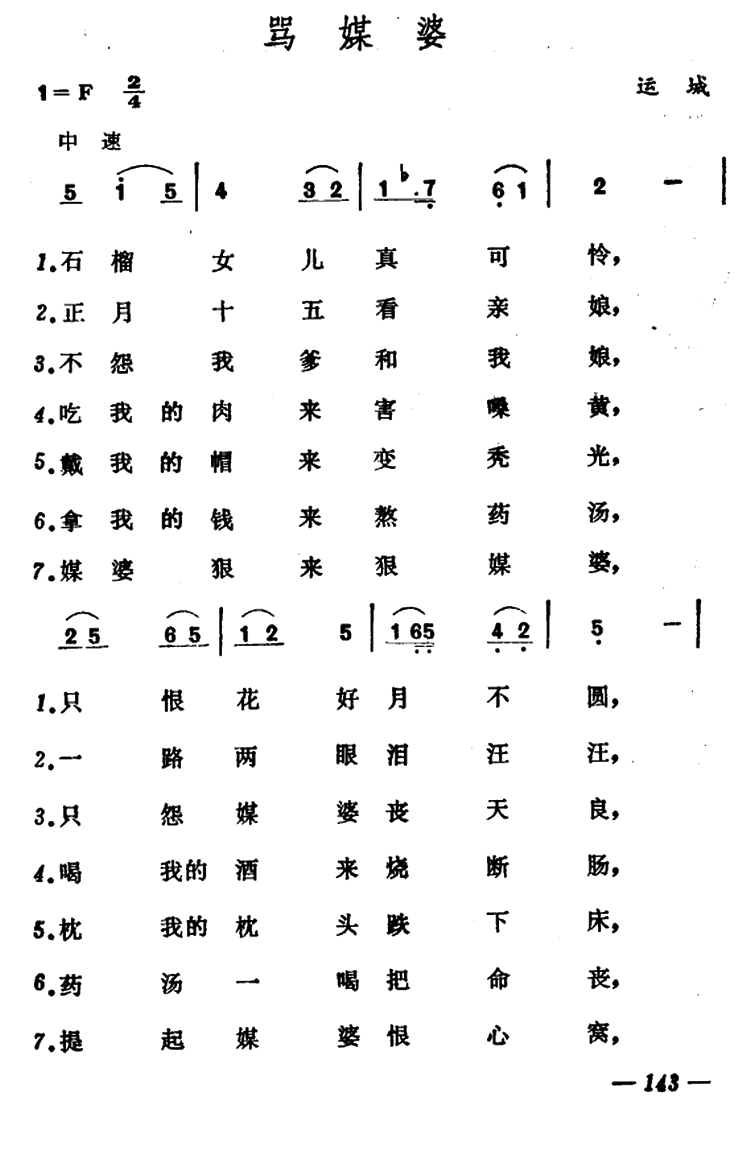 骂媒婆
1=F 2/4 运城
中速
5 i 5 | 4 3 2 | 1 ♭.7 6 1 | 2 - |
1.石榴女儿真可怜,
2.正月十五看亲娘,
3.不怨我爹和我娘,
4.吃我的肉来害嗓黄,
5.戴我的帽来变秃光,
6.拿我的钱来熬药汤,
7.媒婆狠来狠媒婆,
2 5 6 5 | 1 2 5 | 1 65 4 2 | 5 - |
1.只恨花好月不圆,
2.一路两眼泪汪汪,
3.只怨媒婆丧天良,
4.喝我的酒来烧断肠,
5.枕我的枕头跌下床,
6.药汤一喝把命丧,
7.提起媒婆恨心窝,
— 143 —